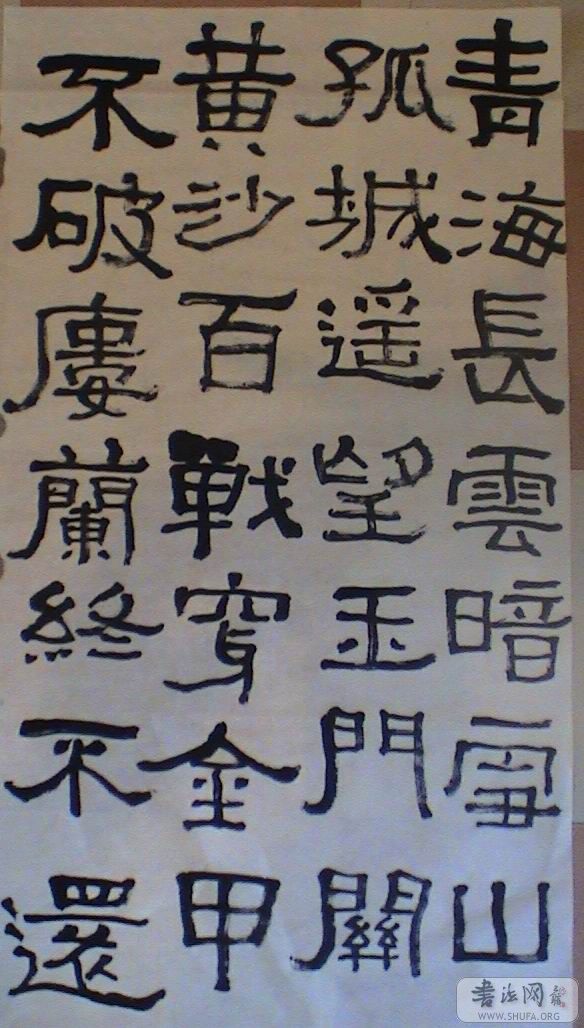 青海長雲暗雪山
孤城遥望玉門關
黄沙百戰穿金甲
不破廔蘭終不還
書法网
WWW.SHUFA.ORG